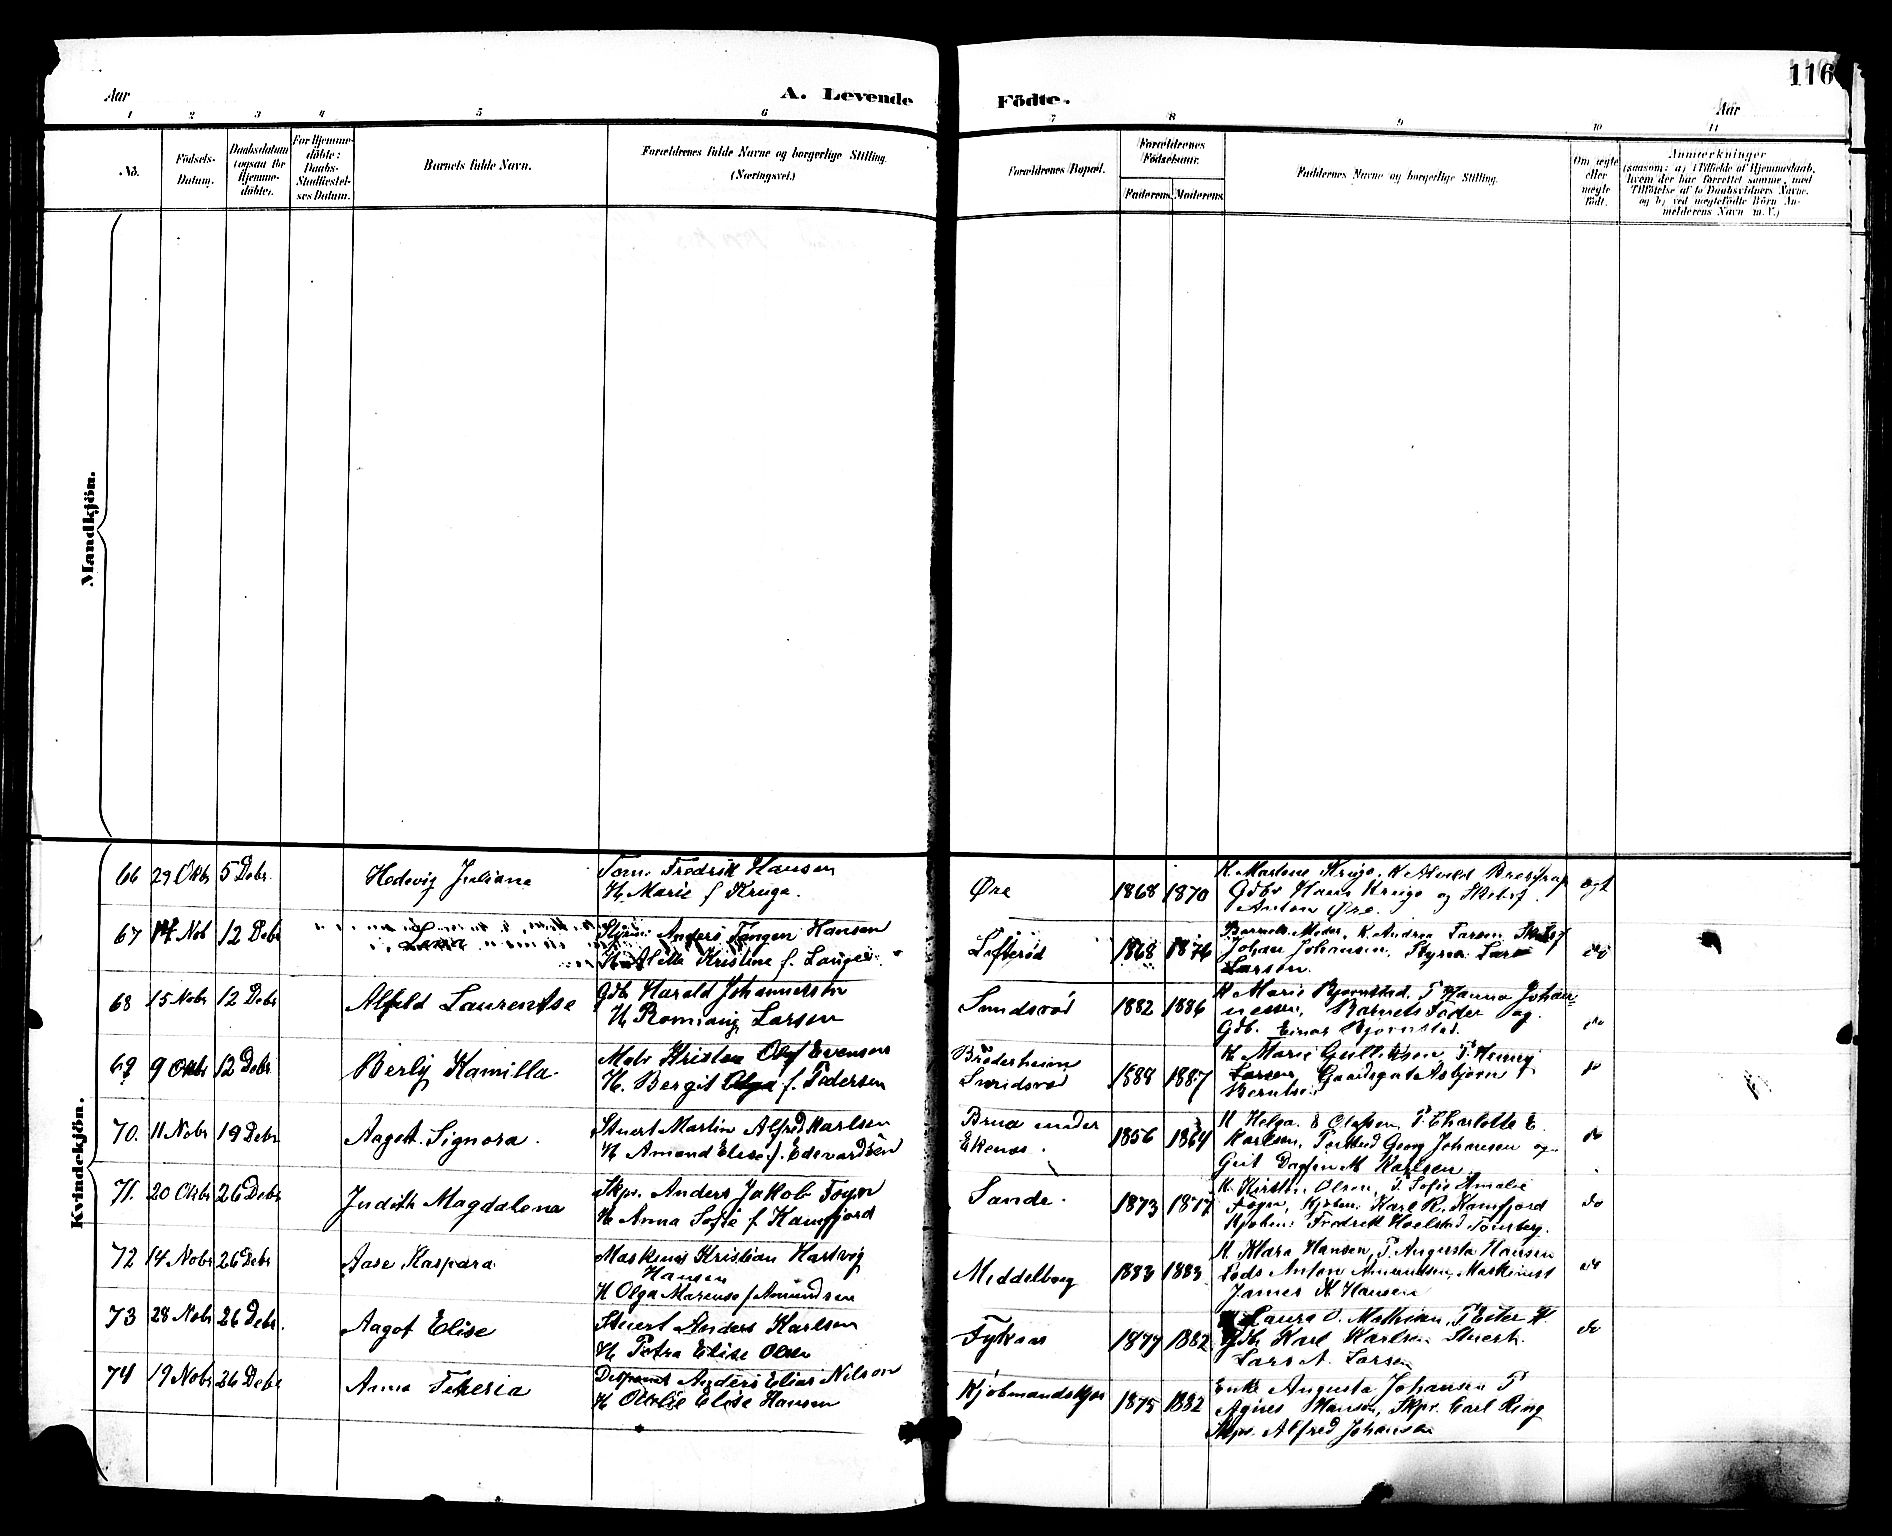 116
Aar
A. Levende
Födte.
Aar
1 2 3 4 5 6 7 8 9 10 11
No.
Födsels-
Datum.
Daabsdatum
(ogsaa for
Hjemme-
döbte).
For Hjemme-
döbte:
Daabs-
Stadfæstel-
ses Datum.
Barnets fulde Navn.
Forældrenes fulde Navne og borgerlige Stilling.
(Næringsvei.)
Forældrenes Bopæl.
Forældrenes
Födselsaar.
Faderens.
Moderens.
Faddernes Navne og borgerlige Stilling.
Om ægte
eller
uægte
födt.
Anmærkninger
(saasom: a) i Tilfælde af Hjemmedaab,
hvem der har forrettet samme, med
Tilföielse af to Daabsvidners Navne,
og b) ved uægtefödte Börn An-
melderens Navn m.V.)
Mandkjön.
Kvindekjön.
66 29 Oktbr 5 Debr. Hedevig Juliane
Tom. Fredrik Hansen
H. Marie f Kruge.
Øre 1868 1870
K Marlene Kruge. K
Gdbr Hans Kruge og
Anton Øre.
ægt
67 14 Nob 12 Debr
Styrm. Anders Tangen Hansen
H. Kristine f. Lauge
Lofterød 1868 1876
Barnets Moder, K. Andrea Larsen
Johan Johansen, Styrm. Lars
Larsen.
do
68 15 Nobr 12 Debr Alfild Laurentse
Gdbr Harald Johannessen
H. Larsen
Sundsrød 1882 1886
K Marie Bjørnstad. P Hanna Johan-
nessen, Barnets Fader og
Gdb. Einar Bjørnstad.
do
69 9 Oktbr 12 Debr Berly Kamilla
Kristen Olaf Evensen
H. Bergit Olga f. Pedersen
Brøderheim
Sundsrød 1888 1887
K Marie Gulliksen P. Henny
Larsen, Gaardsgut Asbjørn
Berntsen
do
70. 11 Nobr 19 Debr Aagot Signora.
Stuert Martin Alfred Karlsen
H Amand Elise f. Edevardsen
Brua under
Ekenes. 1856 1864
K Helga E Olafsen, P. Charlotte E.
Karlsen, Georg Johansen og
Gut Dagfin M Karlsen.
do
71. 20 Oktbr 26 Debr Judith Magdalena
Skpr. Anders Jakob Foyn
H. Anna Sofie f Kamfjord
Sande. 1873 1877
K. Kirsten Olsen, P. Sofie Amalie
Foyn, Kjøbm. Karl R. Kamfjord
Kjøbm. Fredrik Hoelstad Tønsberg.
do
72 14 Nobr 26 Debr Aase Kaspara
Maskinist Kristian Hartvig
Hansen
H Olga Marense f Amundsen
Middelborg 1883 1883
K. Klara Hansen, P. Augusta Hansen
Lods Anton Amundsen, Maskinist
James K Hansen
do
73 28 Nobr 26 Debr. Aagot Elise
Stuert Anders Karlsen
H. Petra Elise Olsen
1877 1882
Laura O. Mathisen, P Ester K.
Gdb. Karl Karlsen Stuert
Lars A. Larsen
do
74 19 Nobr 26 Debr Anna
Anders Elias Nilsen
H Elise Hansen
Kjøbmandskjær 1875 1882
Enke Augusta Johansen P
Agnes Hansen, Skpr. Carl Ring
Skpr. Alfred Johansen